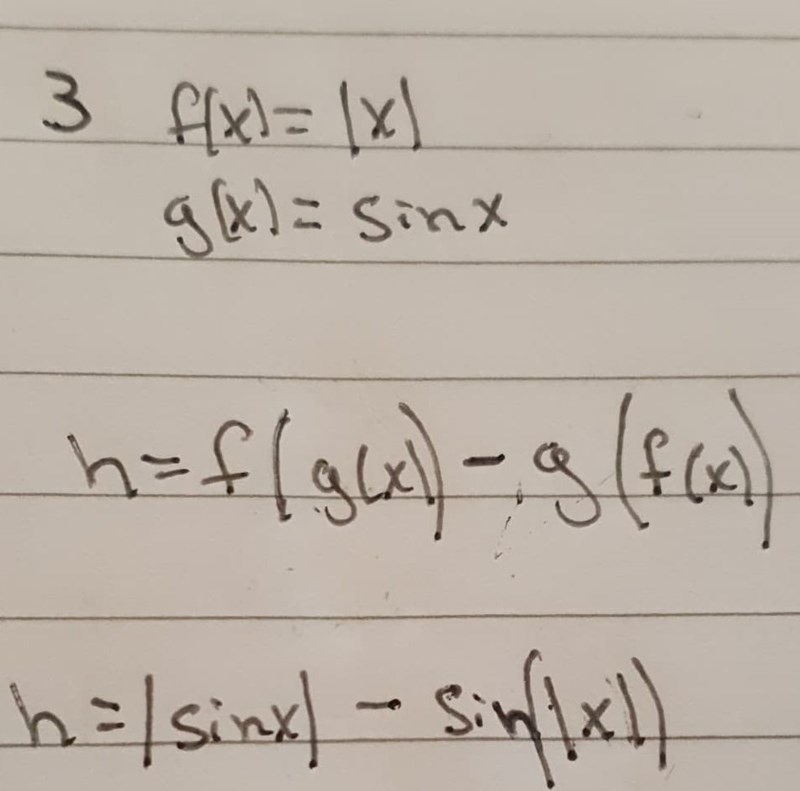 3 f(x) = |x|
g(x) = sinx
h = f(g(x)) - g(f(x))
h = |sinx| - sin(|x|)